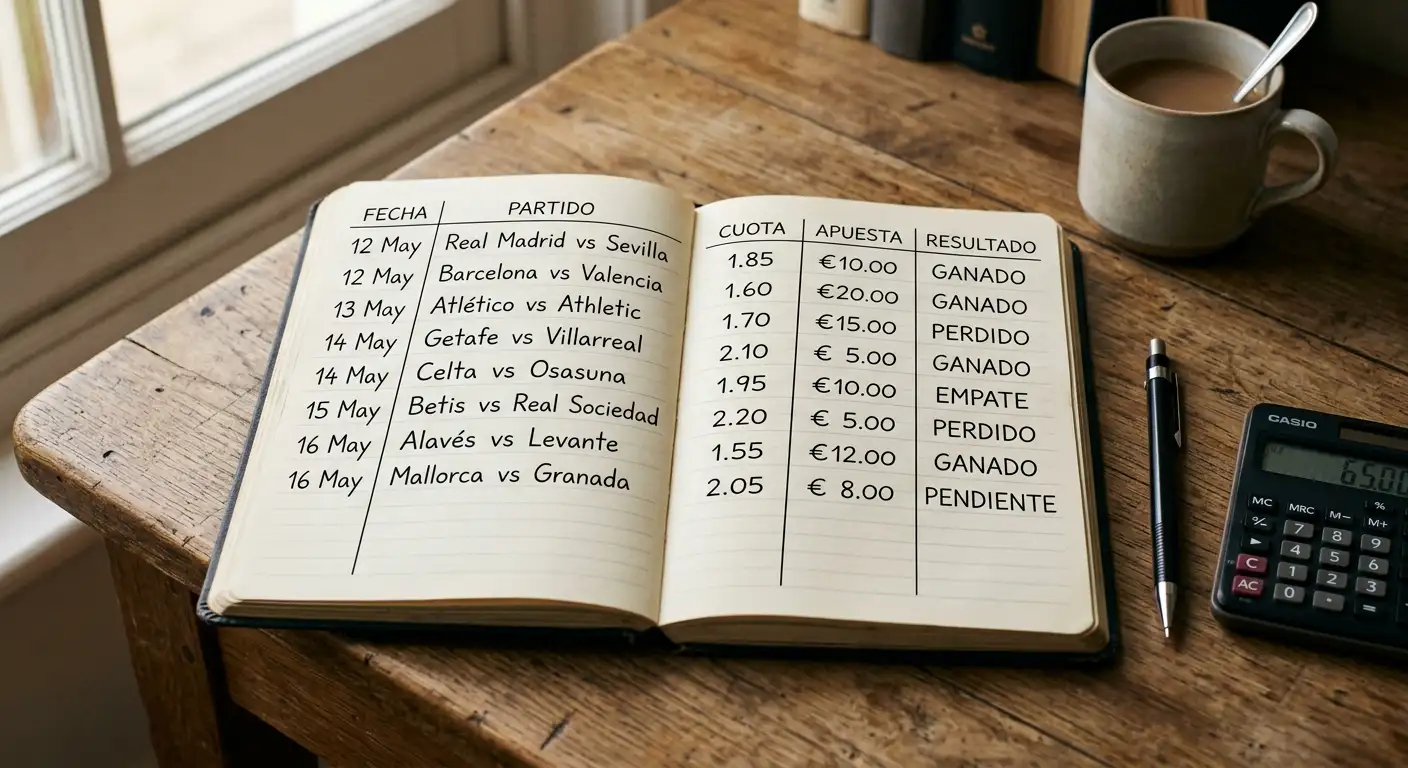 FECHA PARTIDO CUOTA APUESTA RESULTADO
12 May Real Madrid vs Sevilla 1.85 €10.00 GANADO
12 May Barcelona vs Valencia 1.60 €20.00 GANADO
13 May Atlético vs Athletic 1.70 €15.00 PERDIDO
14 May Getafe vs Villarreal 2.10 € 5.00 GANADO
14 May Celta vs Osasuna 1.95 €10.00 EMPATE
15 May Betis vs Real Sociedad 2.20 € 5.00 PERDIDO
16 May Alavés vs Levante 1.55 €12.00 GANADO
16 May Mallorca vs Granada 2.05 € 8.00 PENDIENTE
CASIO
65.00
MC MRC M− %
% M+
7 8 9
4 5 6
C 1 2 3
AC 0 . =